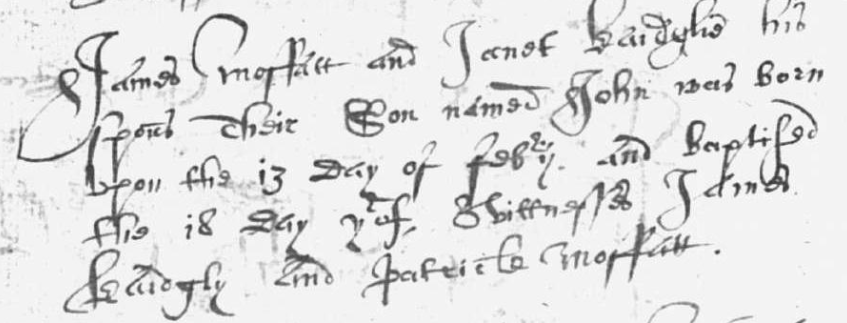 James Moffatt and Janet Kaidglie his
spous their Son named John was born
upon the 13 day of feb^ry. and baptised
the 18 day y^rof, Wittnesses James
Kaidgly and Patrick Moffatt.